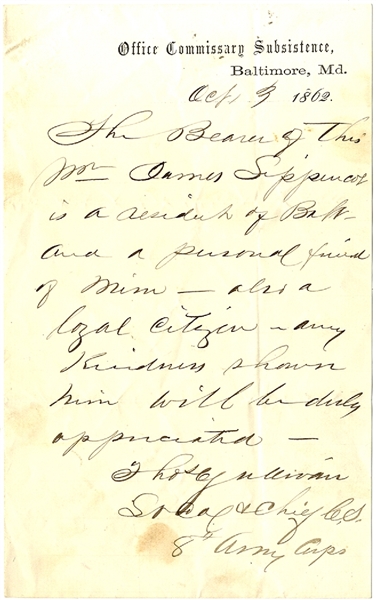 Office Commissary Subsistence,
Baltimore, Md.
Oct, 3 1862.
The Bearer of This
Mr James Lippencot
is a resident of Balt-
and a personal friend
of Mine — also a
loyal citizen - any
Kindness shown
him will be duly
appreciated —
Thos C Sullivan
& Chief C. S.
8th Army Corps